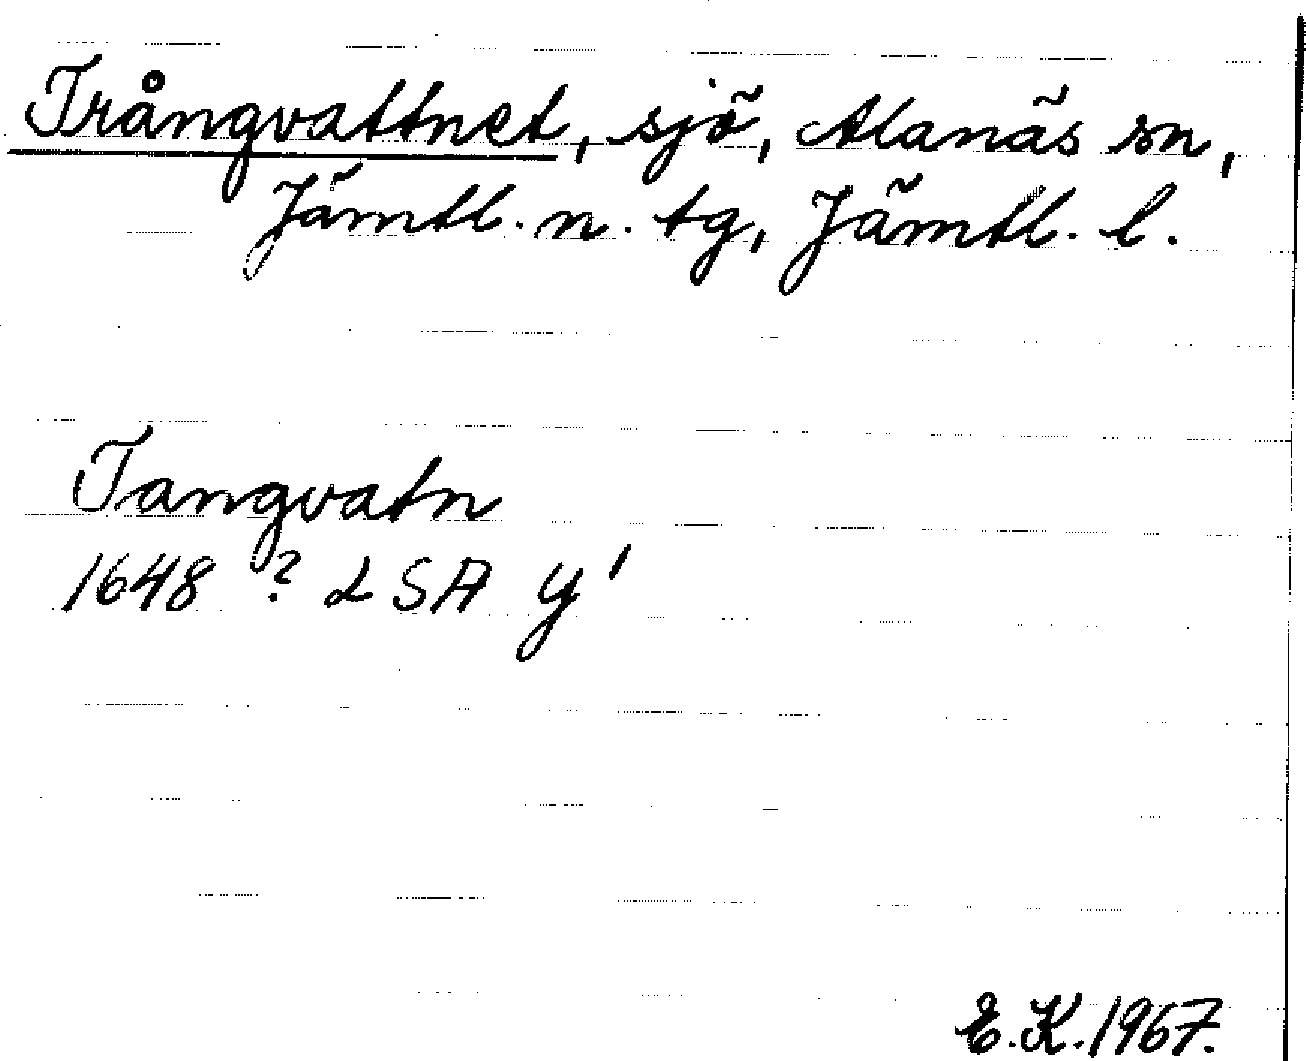 Trångvattnet, sjö, Alanäs sn,
Jämtl. n. tg, Jämtl. l.
Tangvatn
1648 ? LSA Y'
E.K.1967.